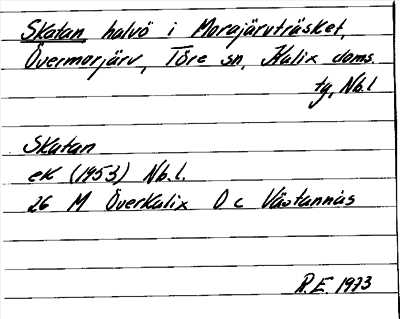 Skatan, halvö i Morajärvträsket,
Övermorjärv, Töre sn, Kalix doms.
tg, Nb.l
Skatan
ek (1953) Nb.l.
26 M Överkalix O c Västannäs
R.E. 1973